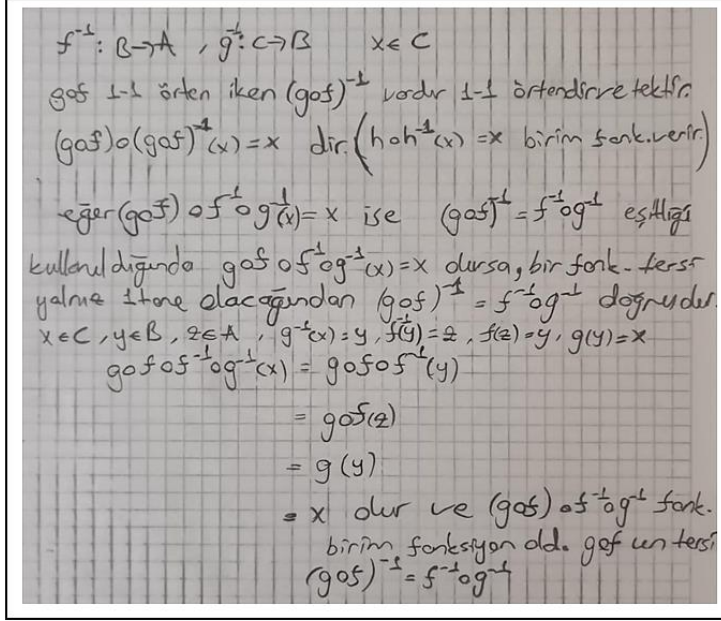 f⁻¹: B→A , g⁻¹: C→B x∈C
gof 1-1 örten iken (gof)⁻¹ vardır 1-1 örtendir ve tektir.
(gof)o(gof)⁻¹(x)=x dir. (hoh⁻¹(x)=x birim fonk.verir)
eğer (gof) o f⁻¹og⁻¹(x)=x ise (gof)⁻¹=f⁻¹og⁻¹ eşitliği
kullanıldığında gofof⁻¹og⁻¹(x)=x olursa, bir fonk. tersi
yalnız 1 tane olacağından (gof)⁻¹=f⁻¹og⁻¹ doğrudur.
x∈C, y∈B, z∈A, g⁻¹(x)=y, f⁻¹(y)=z, f(z)=y, g(y)=x
gofof⁻¹og⁻¹(x) = gofof⁻¹(y)
= gof(z)
= g(y)
= x olur ve (gof)of⁻¹og⁻¹ fonk.
birim fonksiyon old. gof un tersi
(gof)⁻¹=f⁻¹og⁻¹